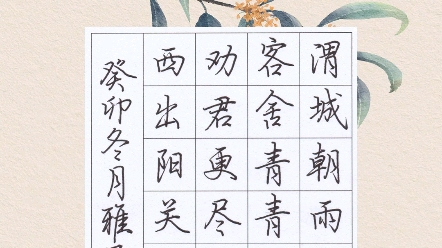 渭城朝雨
客舍青青
劝君更尽
西出阳关
癸卯冬月雅